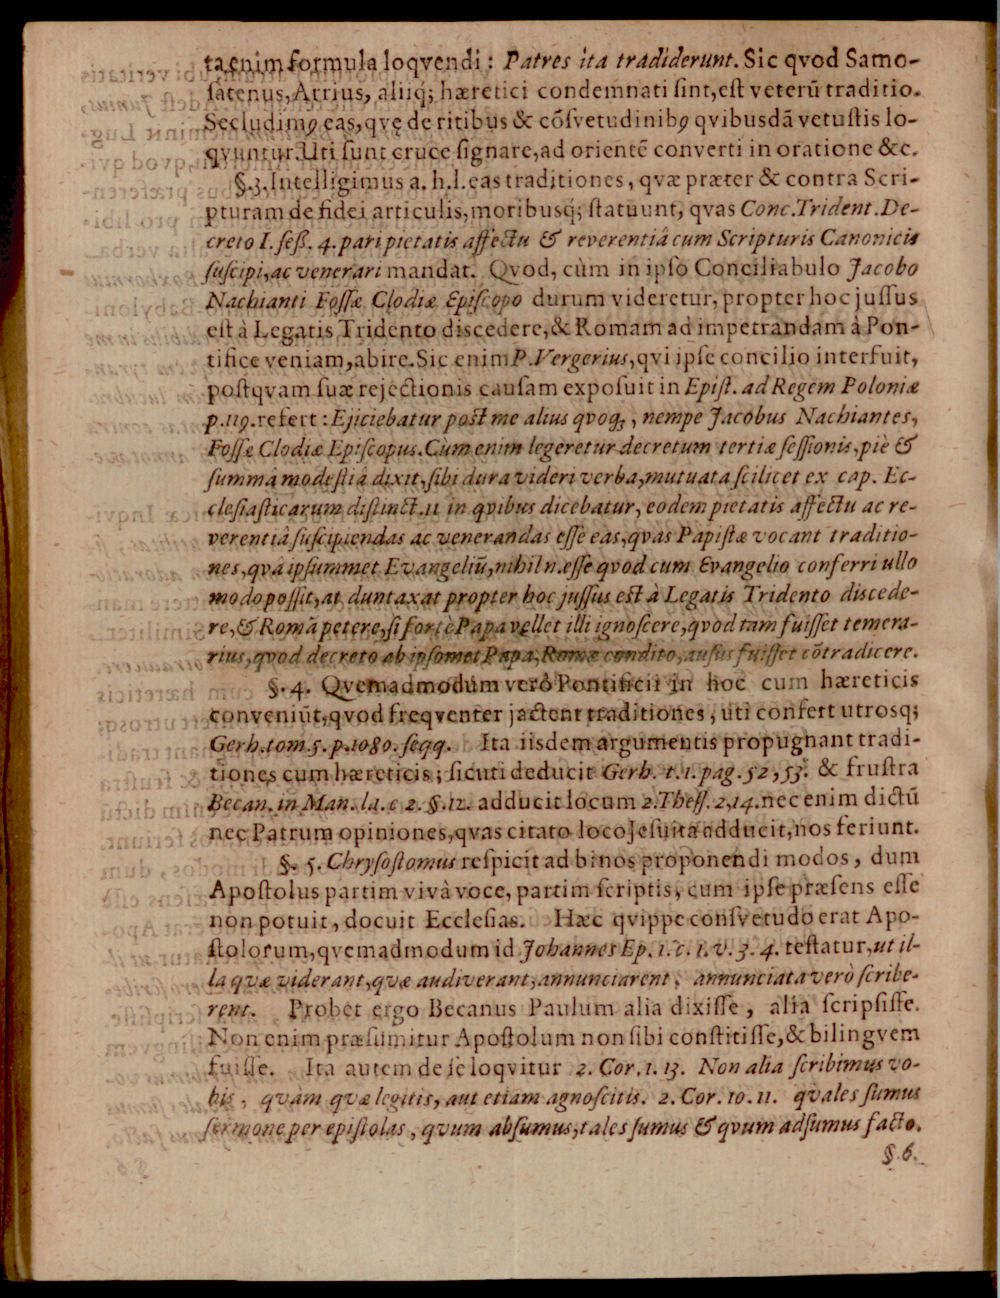 ta enim formula loqvendi: Patres ita tradiderunt. Sic qvod Samo-
ſatenus, Arrius, aliiq; hæretici condemnati ſint, eſt veterū traditio.
Secludimꝰ eas, qvę de ritibus & cōſvetudinibꝰ qvibusdā vetuſtis lo-
qvuntur. Uti ſunt cruce ſignare, ad orientē converti in oratione &c.
§. 3. Intelligimus a. h. l. eas traditiones, qvæ præter & contra Scri-
pturam de fidei articulis, moribusq; ſtatuunt, qvas Conc. Trident. De-
creto I. ſeſſ. 4. pari pietatis affectu & reverentiâ cum Scripturis Canonicis
ſuſcipi, ac venerari mandat. Qvod, cùm in ipſo Conciliabulo Jacobo
Nachianti Foſſæ Clodiæ Epiſcopo durum videretur, propter hoc juſſus
eſt à Legatis Tridento discedere, & Romam ad impetrandam â Pon-
tifice veniam, abire. Sic enim P. Vergerius, qvi ipſe concilio interfuit,
poſtqvam ſuæ rejectionis cauſam expoſuit in Epiſt. ad Regem Poloniæ
p. 119. refert: Ejiciebatur poſt me alius qvoq;, nempe Jacobus Nachiantes,
Foſſæ Clodiæ Epiſcopus. Cùm enim legeretur decretum tertiæ ſeſſionis, piè &
ſummâ modeſtiâ dixit, ſibi dura videri verba, mutuata ſcilicet ex cap. Ec-
cleſiaſticarum diſtinct. 11 in qvibus dicebatur, eodem pietatis affectu ac re-
verentiâ ſuſcipiendas ac venerandas eſſe eas, qvas Papiſtæ vocant traditio-
nes, qvâ ipſummet Evangeliū, nihil n. eſſe qvod cum Evangelio conferri ullo
modo poſſit, at duntaxat propter hoc juſſus eſt à Legatis Tridento discede-
re, & Romā petere, ſi fortè Papa vellet illi ignoſcere, qvod tam fuiſſet temera-
rius, qvod decreto ab ipſomet Papa, Romæ condito, auſus fuiſſet cōtradicere.
§. 4. Qvemadmodum verò Pontificii in hoc cum hæreticis
conveniūt, qvod freqventer jactent traditiones, uti confert utrosq;
Gerh. tom. 5. p. 1080. ſeqq. Ita iisdem argumentis propugnant tradi-
tiones cum hæreticis; ſicuti deducit Gerh. t. 1. pag. 52, 53. & fruſtra
Becan. in Man. l. 1. c 2. §. 12. adducit locum 2. Theſſ. 2, 14. nec enim dictū
nec Patrum opiniones, qvas citato loco Jeſuita adducit, nos feriunt.
§. 5. Chryſoſtomus reſpicit ad binos proponendi modos, dum
Apoſtolus partim vivâ voce, partim ſcriptis, cum ipſe præſens eſſe
non potuit, docuit Eccleſias. Hæc qvippe conſvetudo erat Apo-
ſtolorum, qvemadmodum id Johannes Ep. 1. c. 1. v. 3. 4. teſtatur, ut il-
la qvæ viderant, qvæ audiverant, annunciarent, annunciata verò ſcribe-
rent. Probet ergo Becanus Paulum alia dixiſſe, alia ſcripſiſſe.
Non enim præſumitur Apoſtolum non ſibi conſtitiſſe, & bilingvem
fuiſſe. Ita autem de ſe loqvitur 2. Cor. 1. 13. Non alia ſcribimus vo-
bis, qvàm qvæ legitis, aut etiam agnoſcitis. 2. Cor. 10. 11. qvales ſumus
ſermone per epiſtolas, qvum abſumus, tales ſumus & qvum adſumus facto.
§. 6.